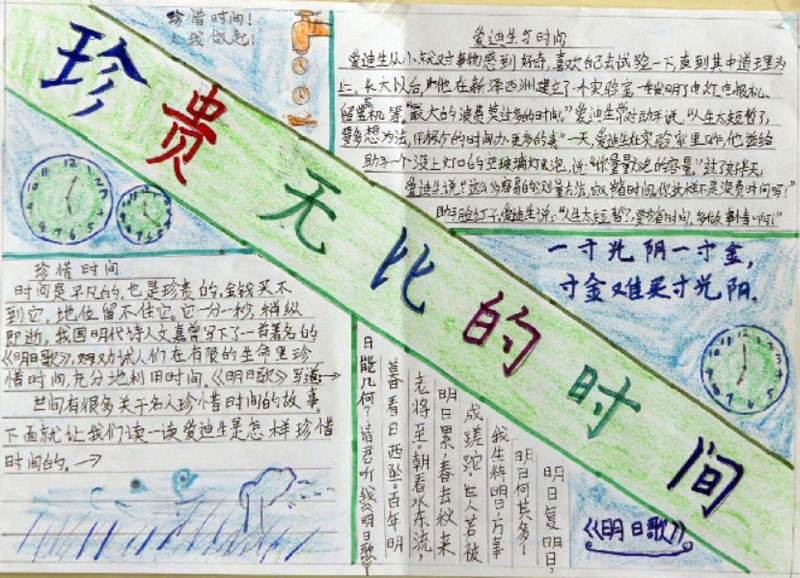 珍贵无比的时间
珍惜时间!
从我做起!
爱迪生与时间
爱迪生从小就对事物感到好奇,喜欢自己去试验一下,直到其中道理为
止。长大以后,他在新泽西洲建立了一个实验室,一生发明了电灯、电报机、
留声机等。"最大的浪费莫过多的时间。"爱迪生常对助手说。"人生太短暂了,
要多想办法,用极少的时间办更多的事"一天,爱迪生在实验室里工作,他递给
助手一个没上灯口的空玻璃灯泡,说:"你量量灯泡的容量。"过了好半天,
爱迪生说:"这么容易的测量方法,
助手脸红了,爱迪生说:"人生太短暂了,要节省时间,多做事情啊!"
一寸光阴一寸金,
寸金难买寸光阴.
珍惜时间
时间是平凡的,也是珍贵的。金钱买不
到它,地位留不住它。它一分一秒,稍纵
即逝,我国明代诗人文嘉曾写下了一首著名的
《明日歌》,劝试人们在有限的生命里珍
惜时间,充分地利用时间。《明日歌》写道:→
世间有很多关于名人珍惜时间的故事。
下面就让我们读一读爱迪生是怎样珍惜
时间的.→
《明日歌》
明日复明日,
明日何其多!
我生待明日,万事
成蹉跎。世人若被
明日累,春去秋来
老将至。朝看水东流,
暮看日西坠。百年明
日能几何?请君听我《明日歌》